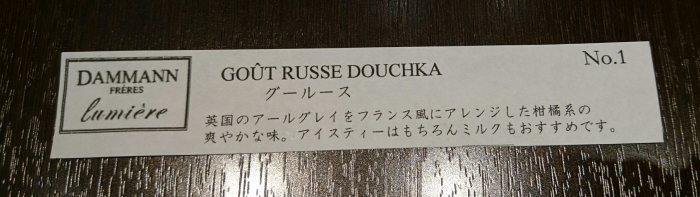 DAMMANN
FRÈRES
lumière
GOÛT RUSSE DOUCHKA
No.1
グールース
英国のアールグレイをフランス風にアレンジした柑橘系の
爽やかな味。アイスティーはもちろんミルクもおすすめです。